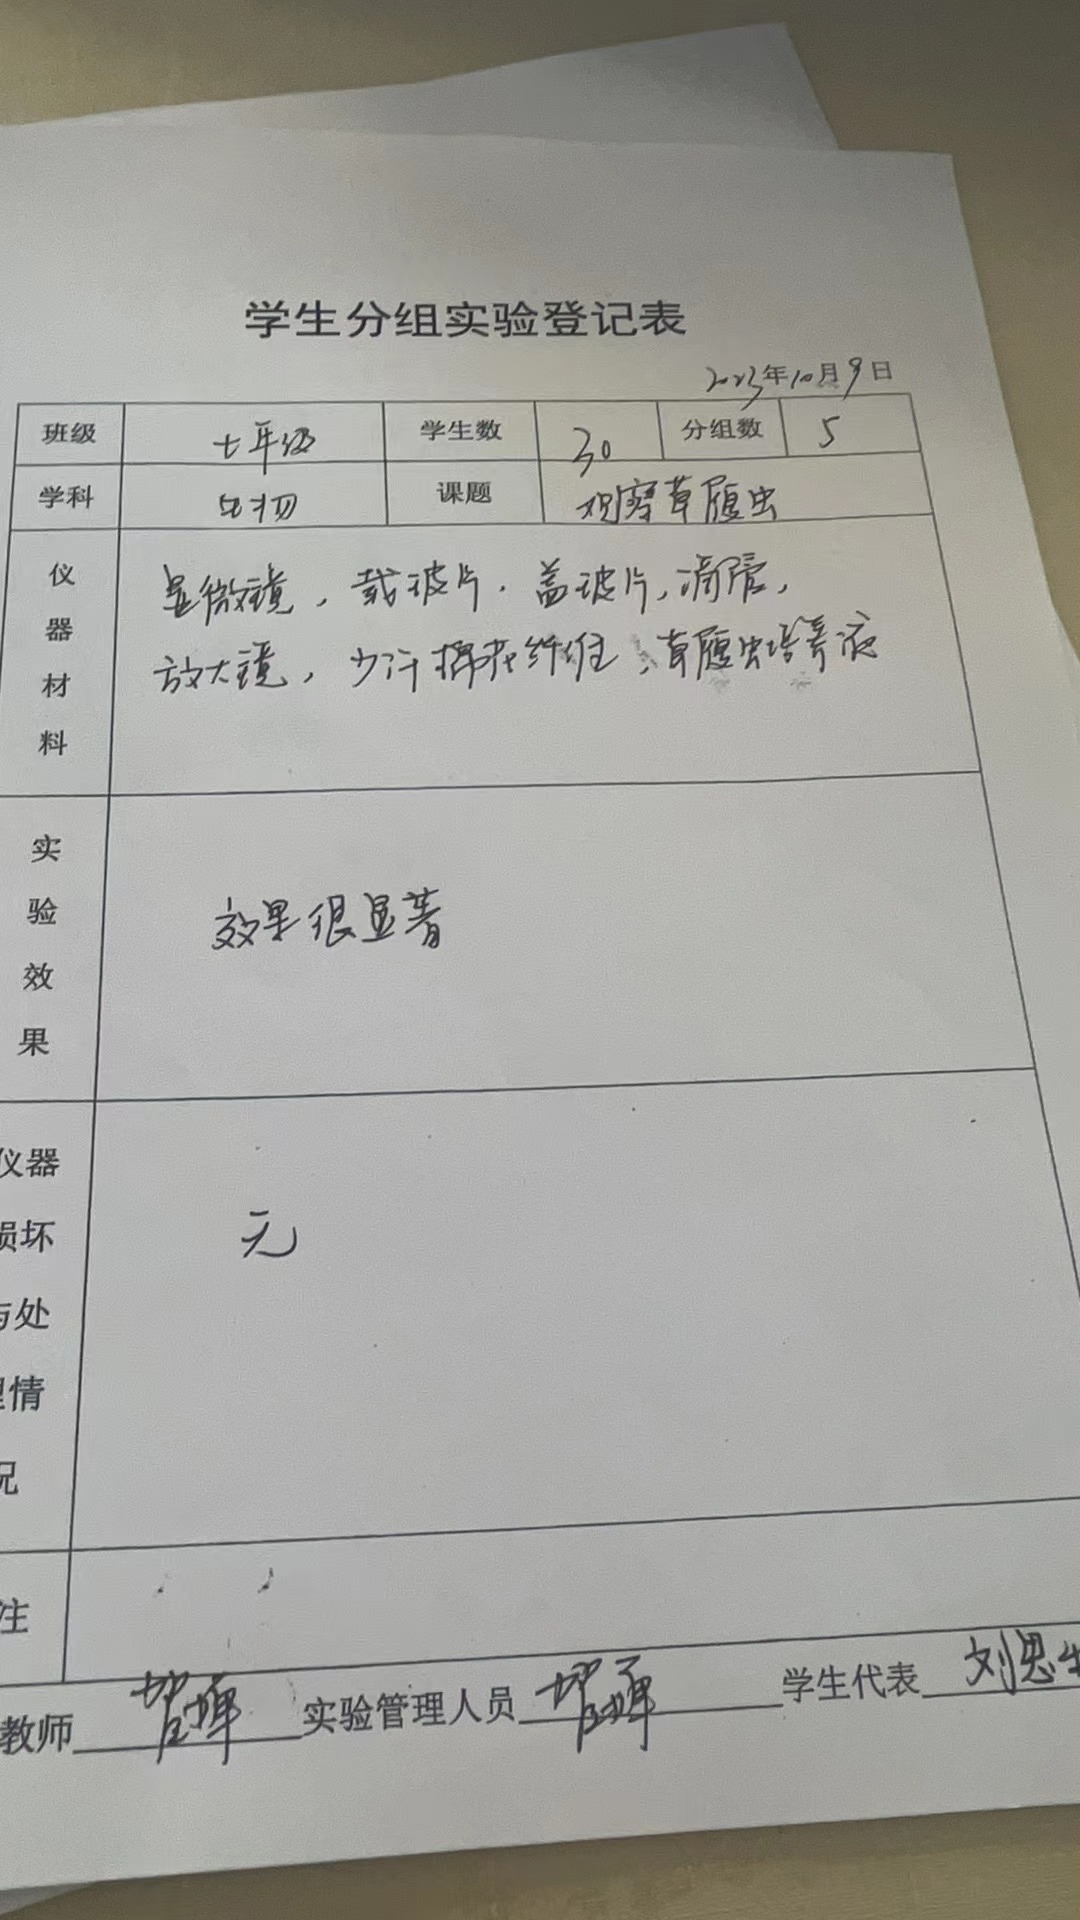 学生分组实验登记表
2023年10月9日
班级 七年级 学生数 30 分组数 5
学科 生物 课题 观察草履虫
仪器材料 显微镜，载玻片，盖玻片，滴管，
放大镜，少许棉花纤维，草履虫培养液
实验效果 效果很显著
仪器
损坏
与处
理情
况
无
注
教师 实验管理人员 学生代表 刘思